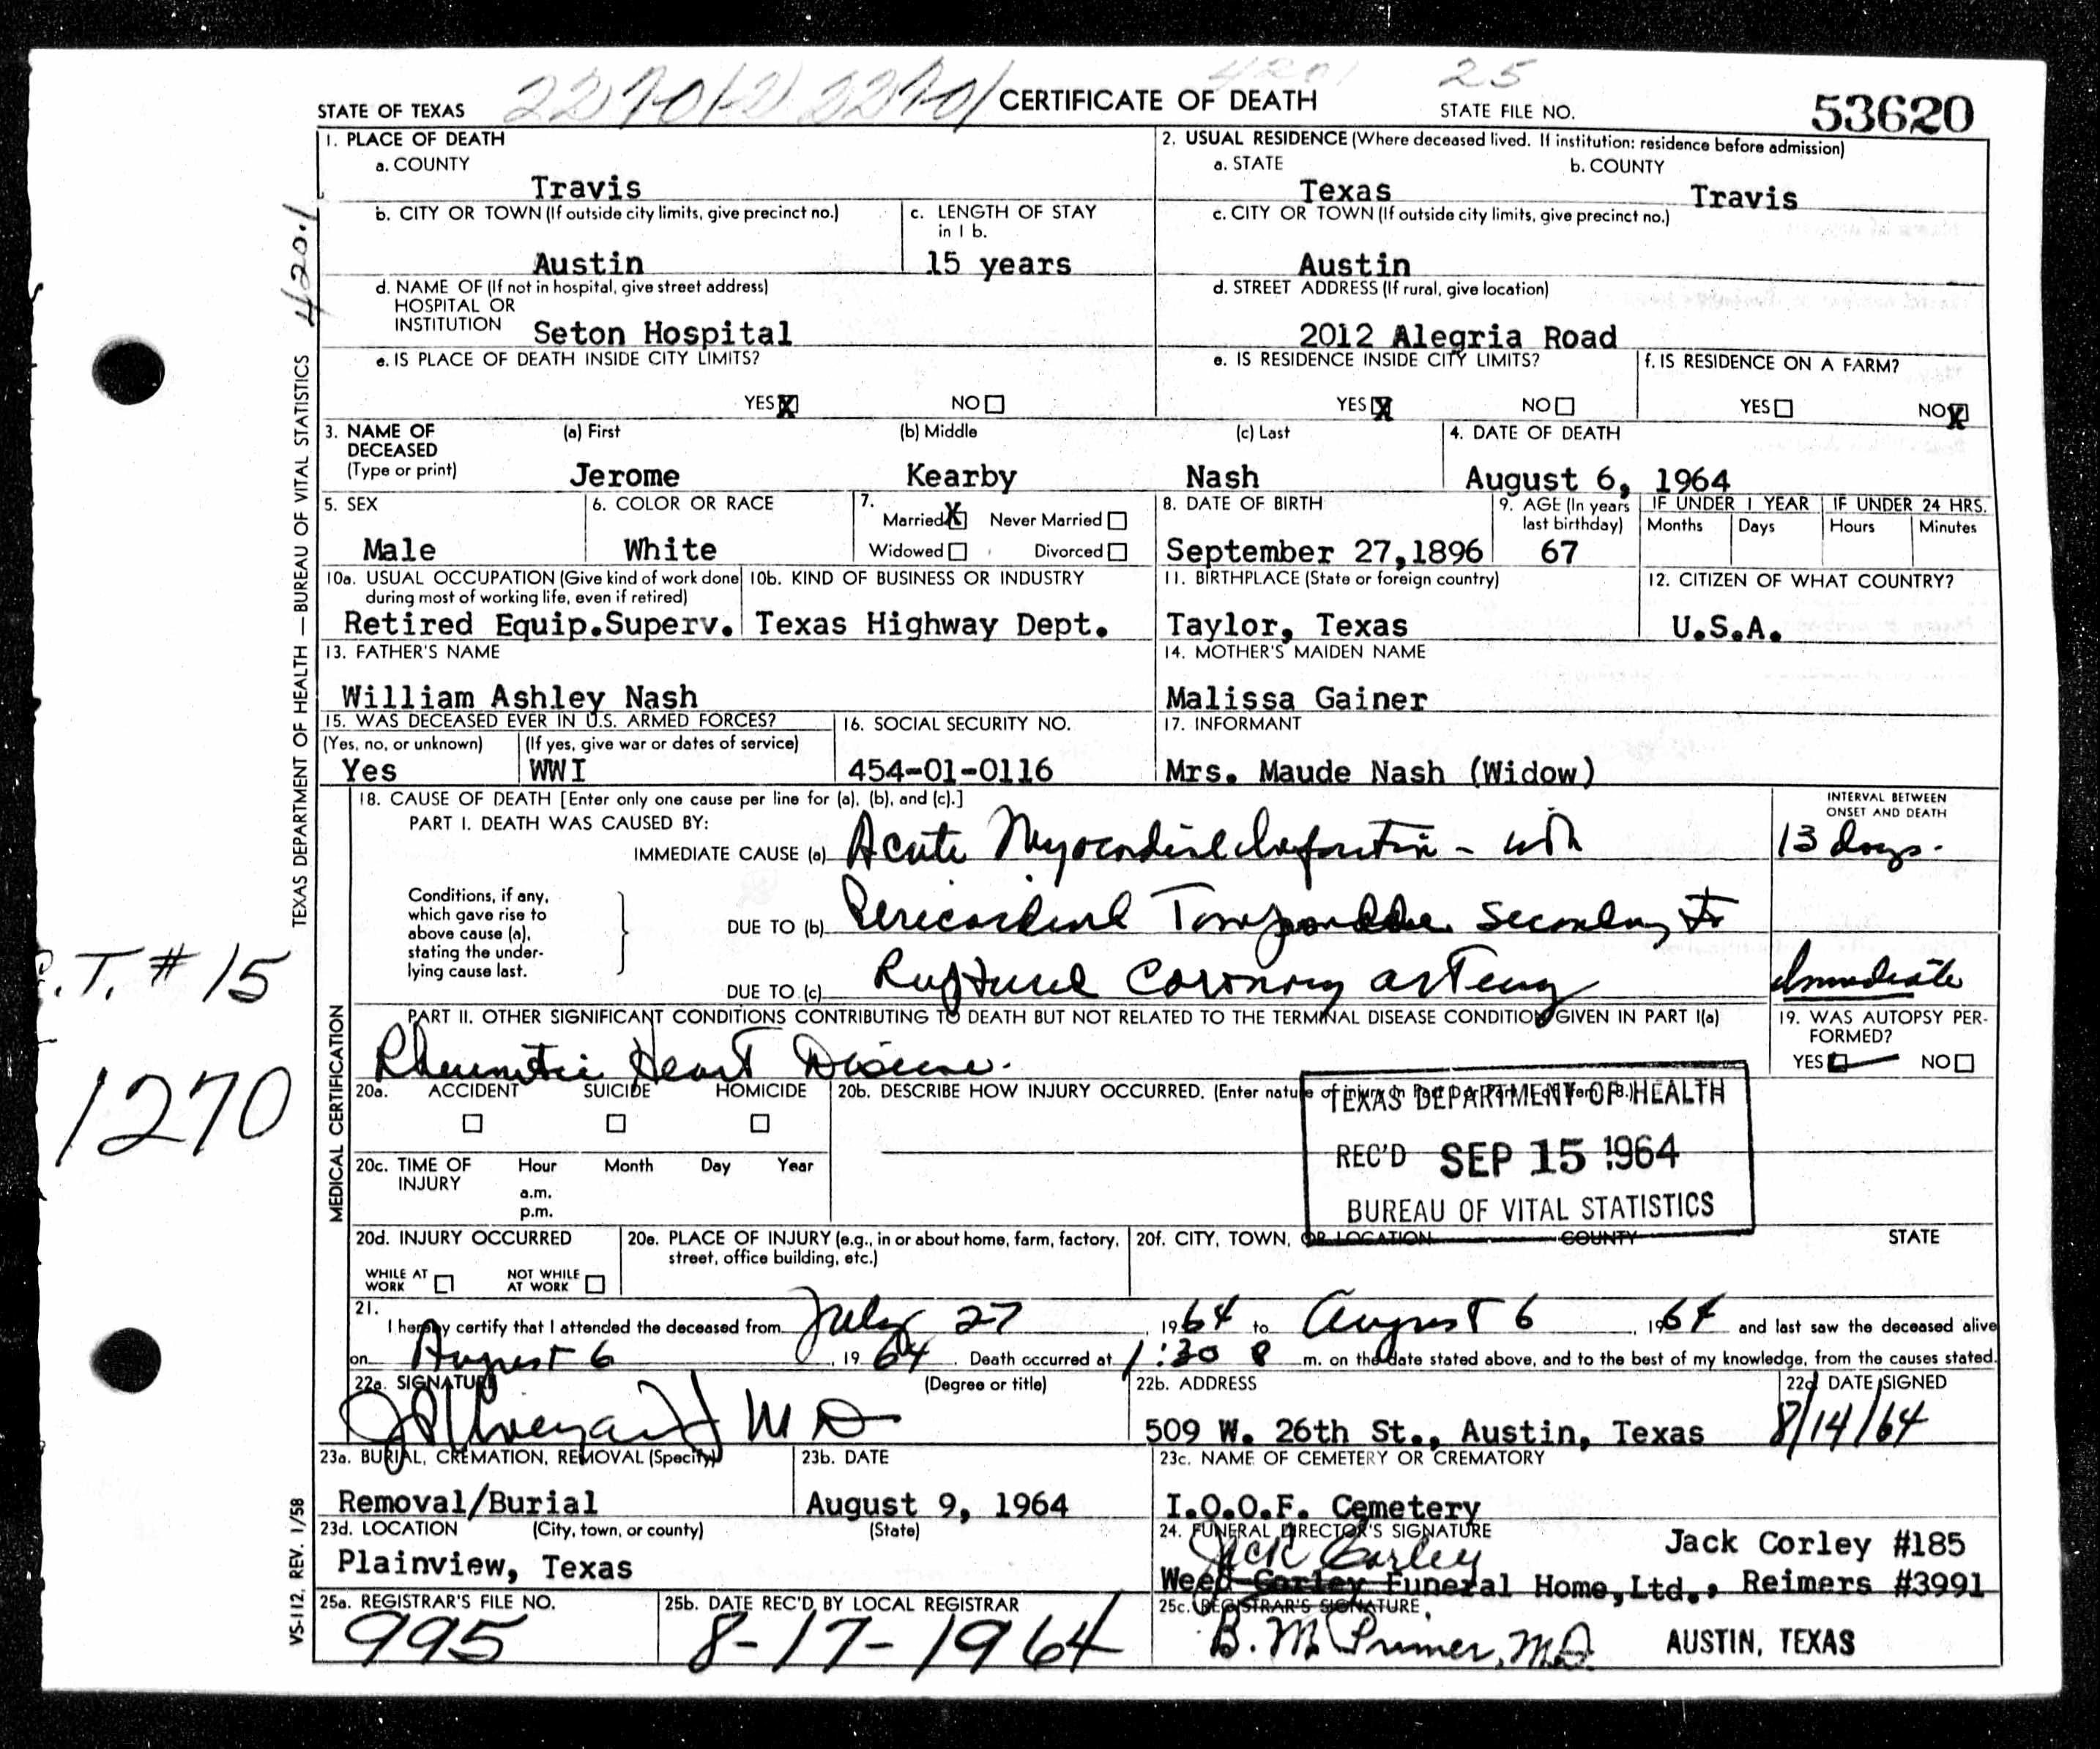 22701-2 22701 4201 25
STATE OF TEXAS CERTIFICATE OF DEATH STATE FILE NO. 53620
1. PLACE OF DEATH
a. COUNTY
Travis
2. USUAL RESIDENCE (Where deceased lived. If institution: residence before admission)
a. STATE b. COUNTY
Texas Travis
b. CITY OR TOWN (If outside city limits, give precinct no.)
Austin
c. LENGTH OF STAY in 1 b.
15 years
c. CITY OR TOWN (If outside city limits, give precinct no.)
Austin
d. NAME OF (If not in hospital, give street address)
HOSPITAL OR
INSTITUTION Seton Hospital
d. STREET ADDRESS (If rural, give location)
2012 Alegria Road
e. IS PLACE OF DEATH INSIDE CITY LIMITS?
YES X NO
e. IS RESIDENCE INSIDE CITY LIMITS?
YES X NO
f. IS RESIDENCE ON A FARM?
YES NO X
3. NAME OF DECEASED (Type or print)
(a) First (b) Middle (c) Last
Jerome Kearby Nash
4. DATE OF DEATH
August 6, 1964
5. SEX
Male
6. COLOR OR RACE
White
7. Married X Never Married
Widowed Divorced
8. DATE OF BIRTH
September 27,1896
9. AGE (In years last birthday)
67
IF UNDER 1 YEAR IF UNDER 24 HRS.
Months Days Hours Minutes
10a. USUAL OCCUPATION (Give kind of work done
during most of working life, even if retired)
Retired Equip.Superv.
10b. KIND OF BUSINESS OR INDUSTRY
Texas Highway Dept.
11. BIRTHPLACE (State or foreign country)
Taylor, Texas
12. CITIZEN OF WHAT COUNTRY?
U.S.A.
13. FATHER'S NAME
William Ashley Nash
14. MOTHER'S MAIDEN NAME
Malissa Gainer
15. WAS DECEASED EVER IN U.S. ARMED FORCES?
(Yes, no, or unknown) (If yes, give war or dates of service)
Yes WWI
16. SOCIAL SECURITY NO.
454-01-0116
17. INFORMANT
Mrs. Maude Nash (Widow)
18. CAUSE OF DEATH [Enter only one cause per line for (a), (b), and (c).]
PART I. DEATH WAS CAUSED BY:
INTERVAL BETWEEN
ONSET AND DEATH
IMMEDIATE CAUSE (a) Acute Myocardial Infarction - with 13 days.
Conditions, if any,
which gave rise to
above cause (a),
stating the under-
lying cause last.
DUE TO (b) Pericardial Tamponade secondary to
DUE TO (c) Ruptured Coronary artery Immediate
PART II. OTHER SIGNIFICANT CONDITIONS CONTRIBUTING TO DEATH BUT NOT RELATED TO THE TERMINAL DISEASE CONDITION GIVEN IN PART I(a)
Rheumatic Heart Disease.
19. WAS AUTOPSY PER-
FORMED?
YES NO
20a. ACCIDENT SUICIDE HOMICIDE
20b. DESCRIBE HOW INJURY OCCURRED. (Enter nature of
TEXAS DEPARTMENT OF HEALTH
REC'D SEP 15 1964
BUREAU OF VITAL STATISTICS
20c. TIME OF INJURY
Hour Month Day Year
a.m.
p.m.
20d. INJURY OCCURRED
WHILE AT WORK NOT WHILE AT WORK
20e. PLACE OF INJURY (e.g., in or about home, farm, factory,
street, office building, etc.)
20f. CITY, TOWN, OR LOCATION COUNTY STATE
21. I hereby certify that I attended the deceased from July 27, 1964 to August 6, 1964 and last saw the deceased alive
on August 6, 1964. Death occurred at 1:30 P m. on the date stated above, and to the best of my knowledge, from the causes stated.
22a. SIGNATURE (Degree or title)
M D
22b. ADDRESS
509 W. 26th St., Austin, Texas
22c. DATE SIGNED
8/14/64
23a. BURIAL, CREMATION, REMOVAL (Specify)
Removal/Burial
23b. DATE
August 9, 1964
23c. NAME OF CEMETERY OR CREMATORY
I.O.O.F. Cemetery
23d. LOCATION (City, town, or county) (State)
Plainview, Texas
24. FUNERAL DIRECTOR'S SIGNATURE
Jack Corley Jack Corley #185
Weed-Corley Funeral Home,Ltd., Reimers #3991
25a. REGISTRAR'S FILE NO.
995
25b. DATE REC'D BY LOCAL REGISTRAR
8-17-1964
25c. REGISTRAR'S SIGNATURE
B. M. Primer, M.D. AUSTIN, TEXAS
TEXAS DEPARTMENT OF HEALTH — BUREAU OF VITAL STATISTICS 420.1
MEDICAL CERTIFICATION
VS-112, REV. 1/58
.T. # 15
1270